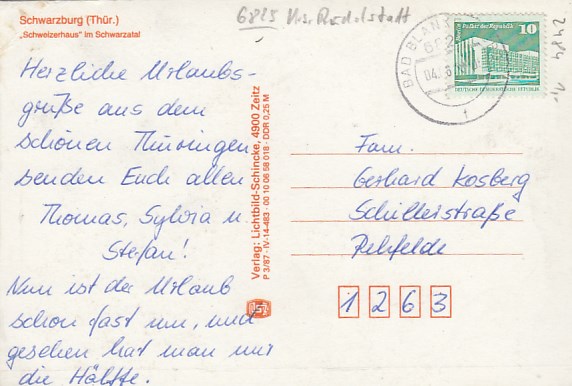 Schwarzburg (Thür.)
„Schweizerhaus" im Schwarzatal
6825 Krs. Rudolstadt
2484 1,-
Herzliche Urlaubs-
grüße aus dem
schönen Thüringen
senden Euch allen
Thomas, Sylvia u.
Stefan!
Nun ist der Urlaub
schon fast um, und
gesehen hat man nur
die Hälfte.
Verlag: Lichtbild-Schincke, 4900 Zeitz
P 3/87 · IV-14-483 · 00 10 06 58 018 · DDR 0,25 M
BAD BLAN
04.
10
Palast der Republik
DEUTSCHE DEMOKRATISCHE REPUBLIK
Fam.
Gerhard Kosberg
Schillerstraße
Rehfelde
1263